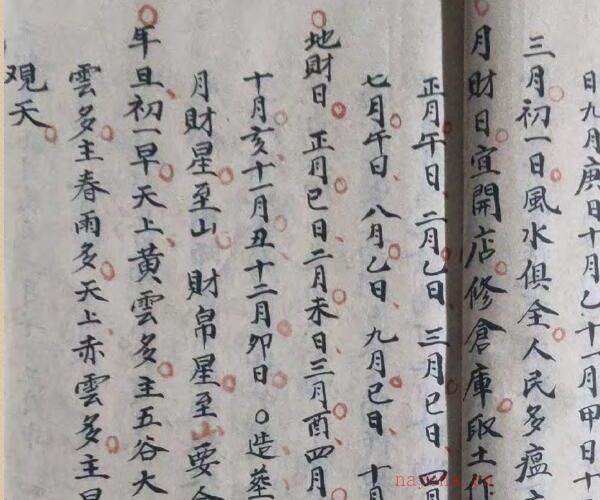 日九月庚日十月乙十一月甲日十
三月初一日風水俱全人民多瘟
月財日宜開店修倉庫取土
正月午日 二月乙日 三月巳日 四月
七月午日 八月乙日 九月巳日 十月
地財日 正月巳日二月未日三月酉四月
十月亥十一月丑十二月卯日 ○造葬
月財星至山 財帛星至山要合
年旦初一早天上黃雲多主五谷大
雲多主春雨多天上赤雲多主旱
观天